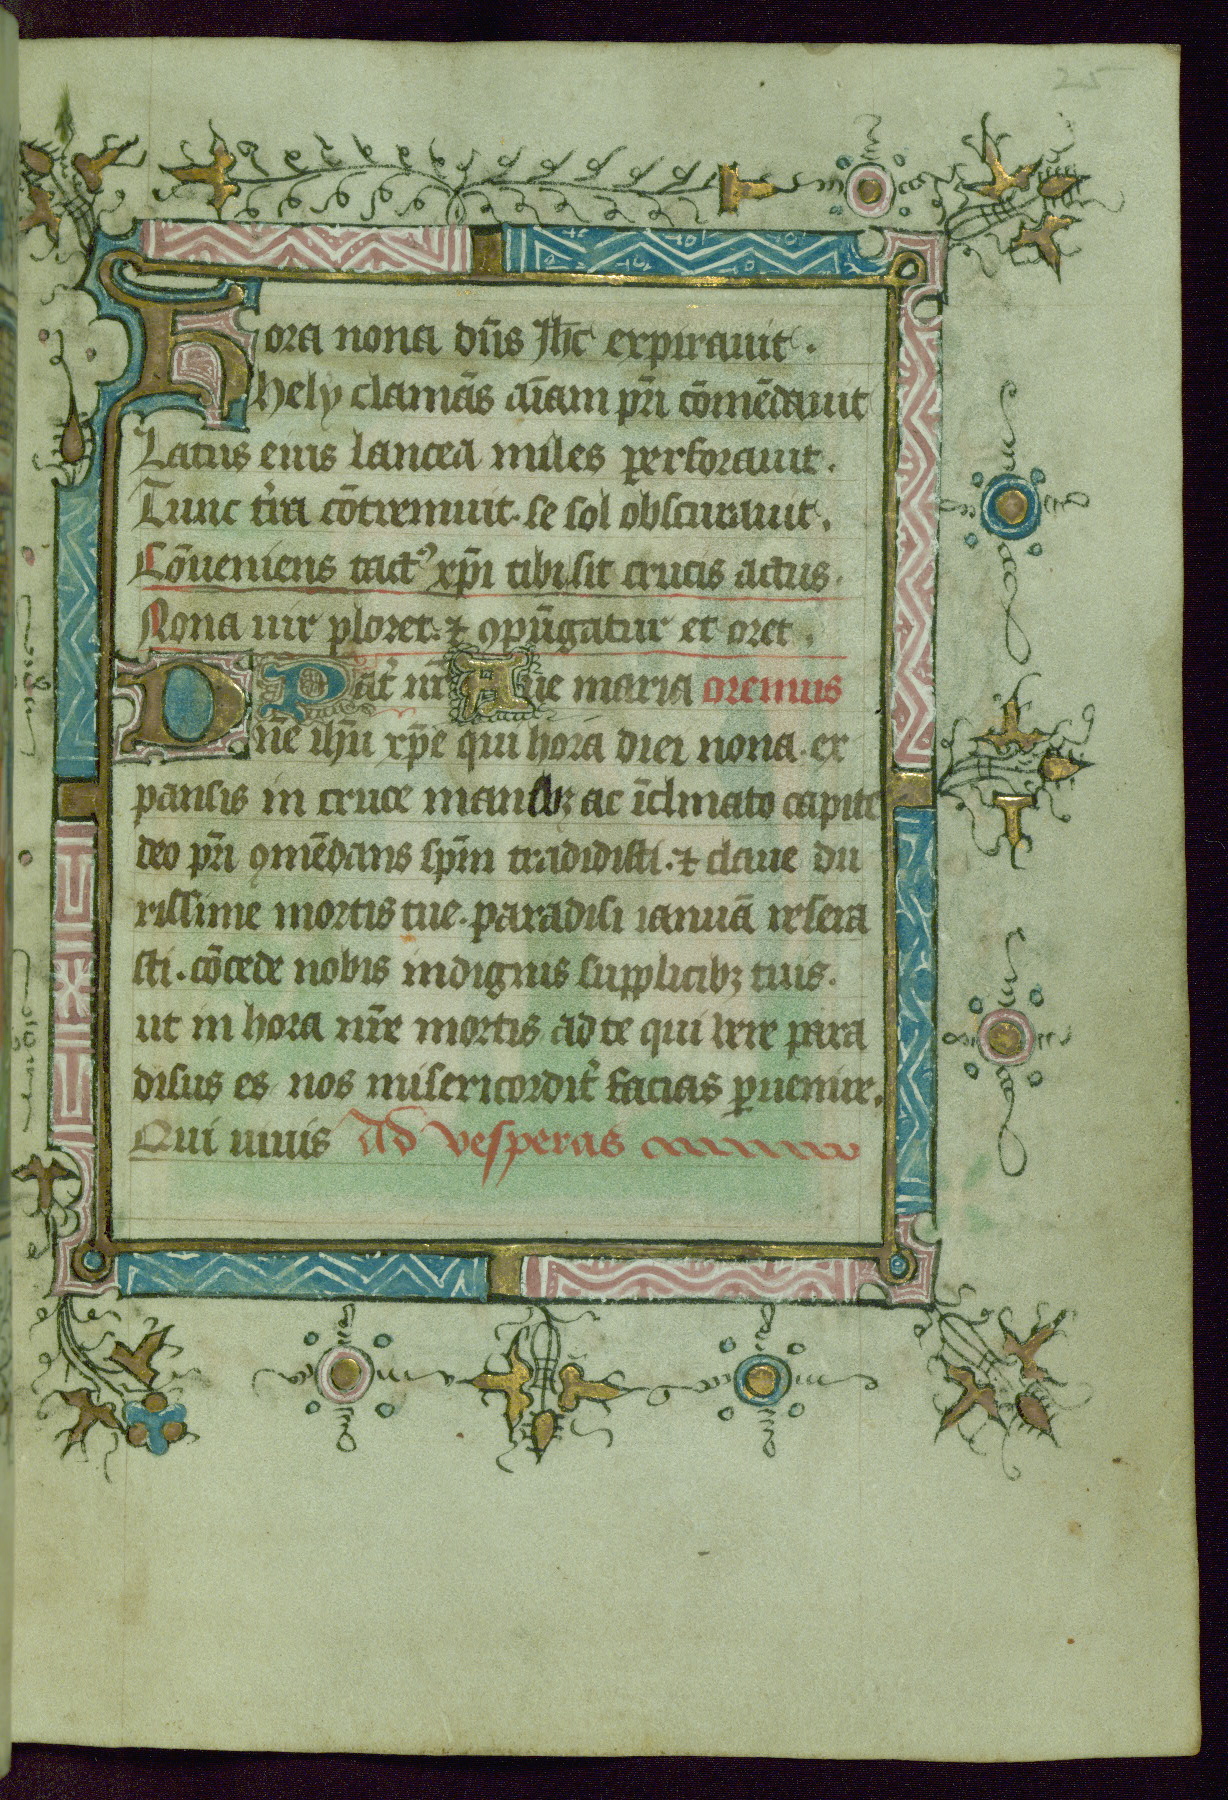 25
Hora nona dn̄s Jhc̄ expirauit.
hely clamās aīam pr̄i cōmēdauit
Latus eius lancea miles perforauit.
Tunc t'ra cōtremuit. se sol obscurauit.
Cōueniens tactꝰ xp̄i tibi sit crucis actus.
Nona uir ploret. ⁊ ꝯpūgatur et oret.
Pat' nr̄ Aue maria oremus
Dn̄e ih̄u xp̄e qui hora diei nona. ex
pansis in cruce manibꝫ ac īclinato capite
deo pr̄i ꝯmēdans sp̄m tradidisti. ⁊ claue du
rissime mortis tue. paradisi ianuā resera
sti. cōcede nobis indignis supplicibꝫ tuis.
ut in hora nr̄e mortis ad te qui uere para
disus es nos misericordit' facias ꝑuenire.
Qui uiuis Ad vesperas